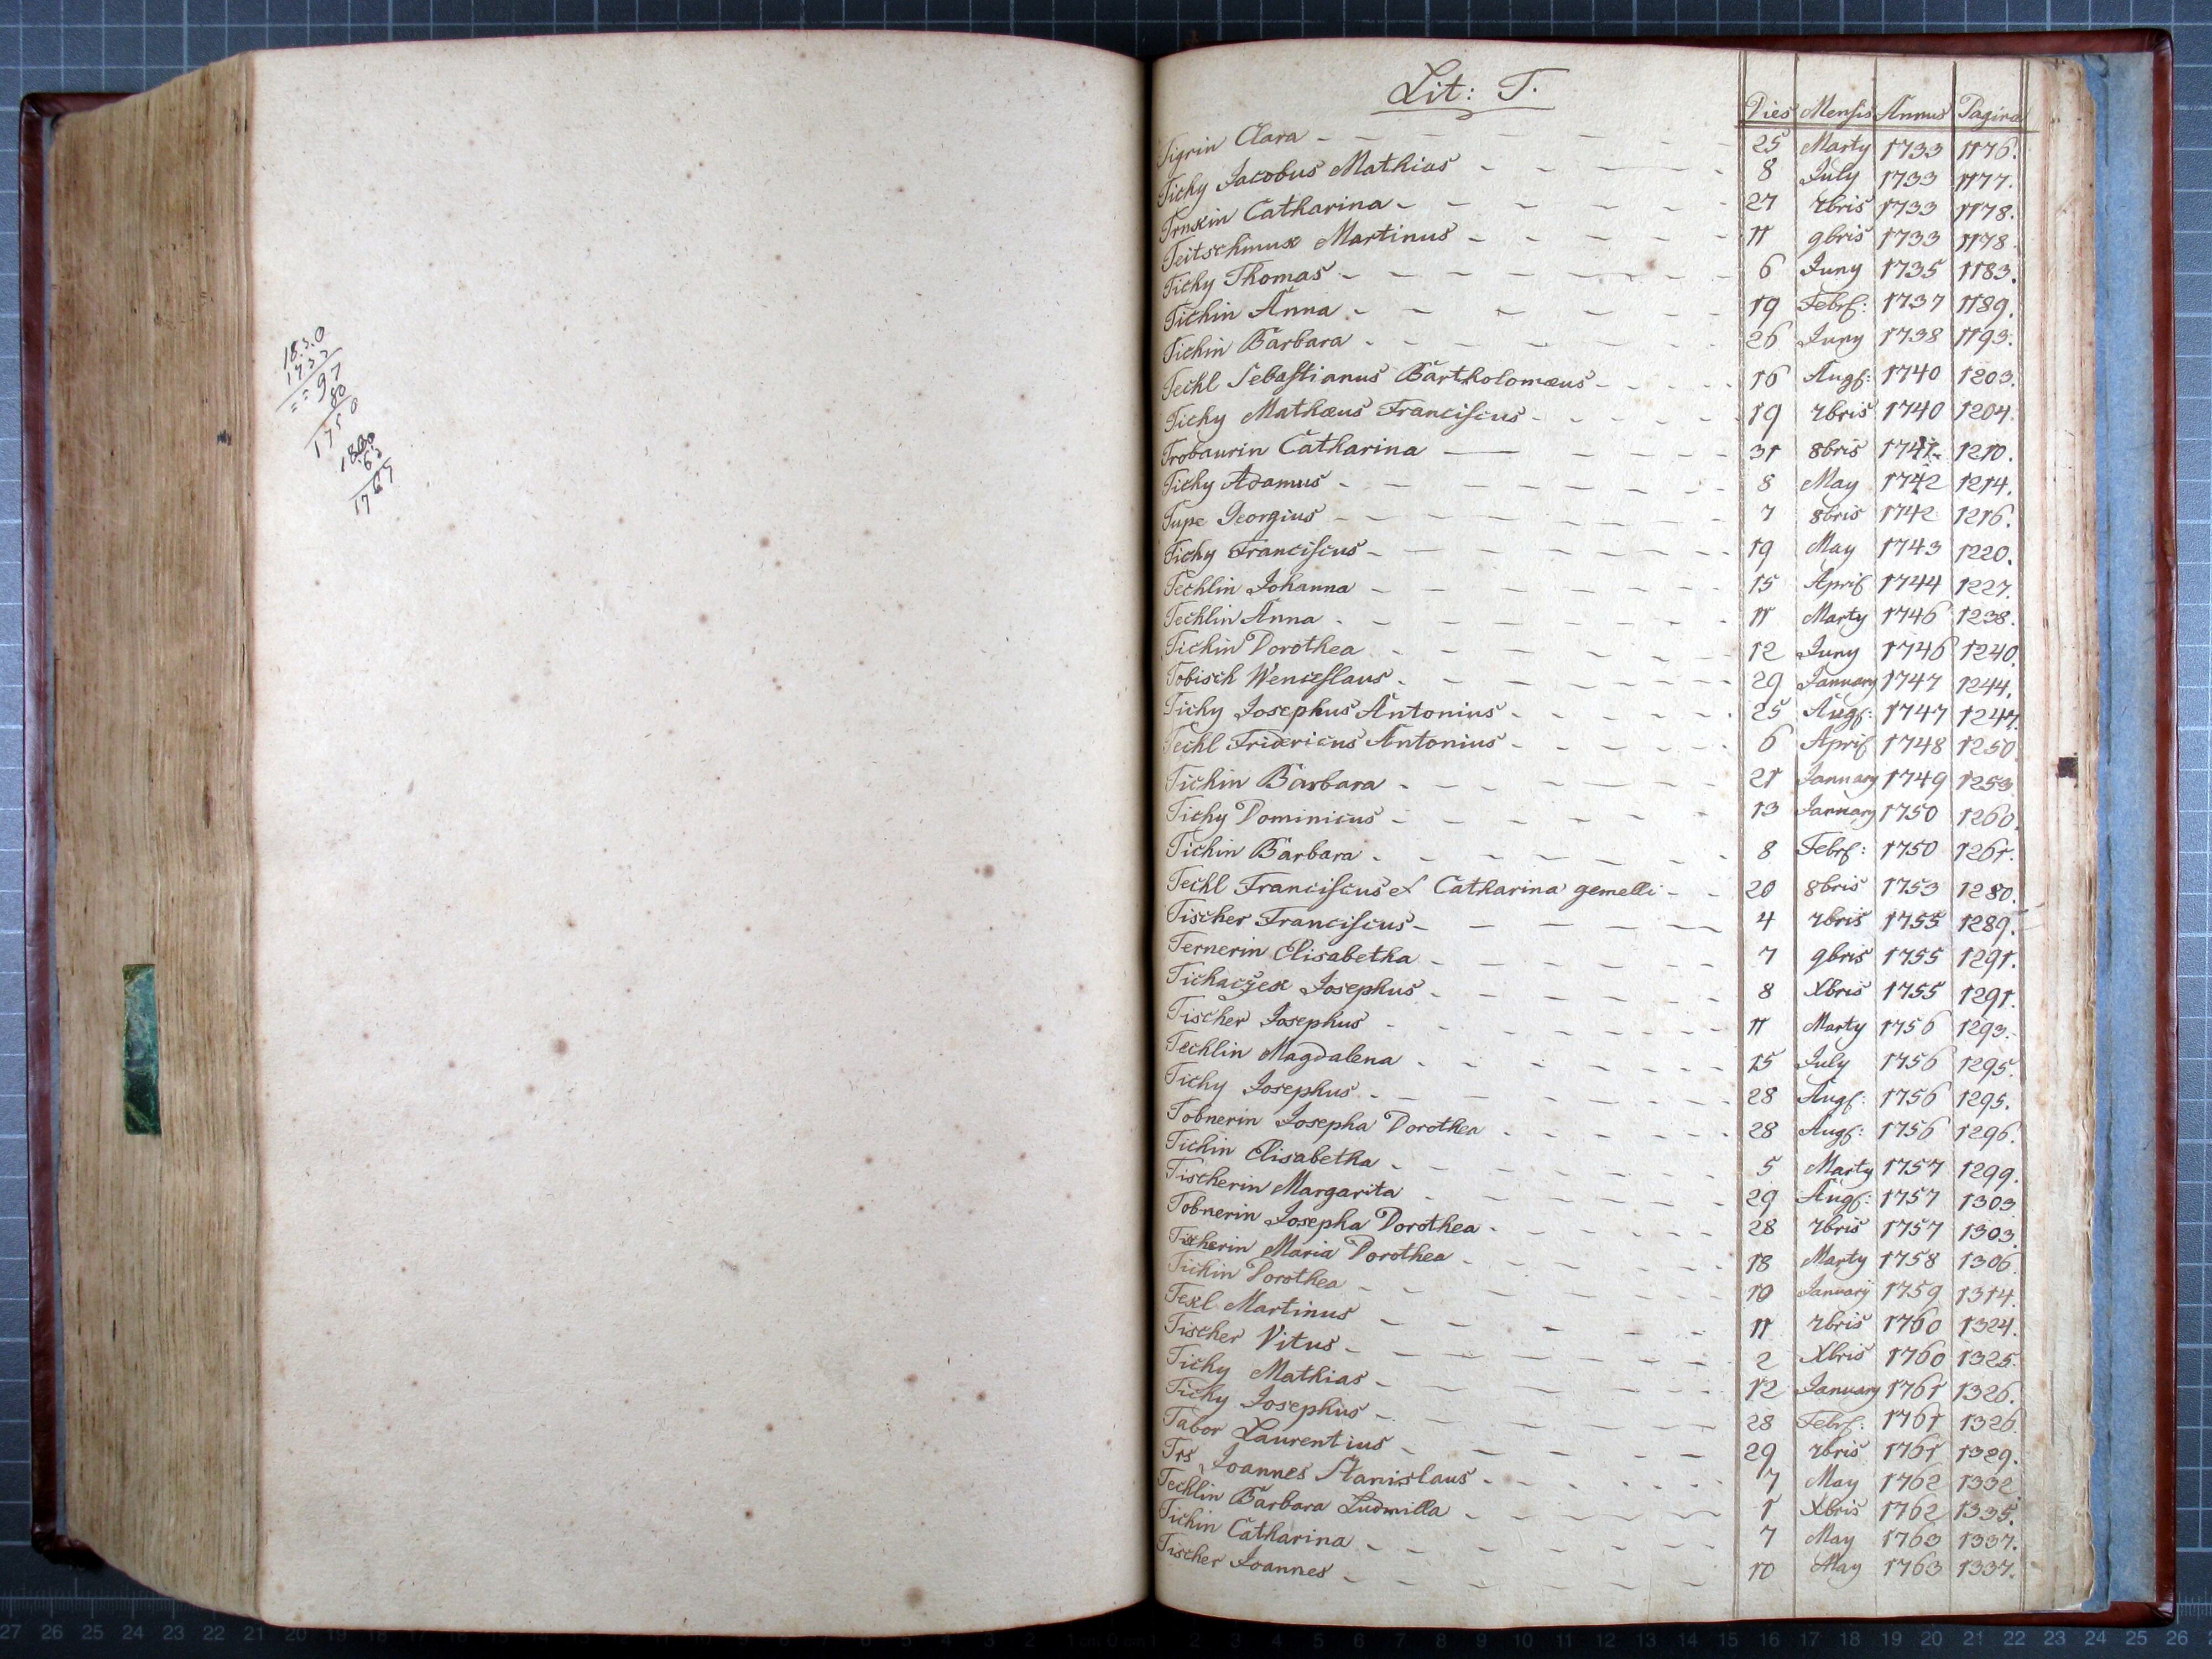 18.3.0
1733
= = 97
80
1750
1830
63
1767
Lit: T.
Dies Mensis Annus Pagina
Tigrin Clara 25 Marty 1733 1176.
Tichy Jacobus Mathias 8 July 1733 1177.
Trnkin Catharina 27 7bris 1733 1178.
Teitschmux Martinus 11 9bris 1733 1178.
Tichy Thomas 6 Juny 1735 1183.
Tichin Anna 19 Febr: 1737 1189.
Tichin Barbara 26 Juny 1738 1193.
Techl Sebastianus Bartholomæus 16 Aug: 1740 1203.
Tichy Mathæus Franciscus 19 7bris 1740 1204.
Trobaurin Catharina 31 8bris 1741 1210.
Tichy Adamus 8 May 1742 1214.
Tupe Georgius 7 8bris 1742 1216.
Tichy Franciscus 19 May 1743 1220.
Techlin Johanna 15 April 1744 1227.
Techlin Anna 11 Marty 1746 1238.
Tichin Dorothea 12 Juny 1746 1240.
Tobisch Wenceslaus 29 January 1747 1244.
Tichy Josephus Antonius 25 Aug: 1747 1247.
Techl Fridericus Antonius 6 April 1748 1250
Tichin Barbara 21 January 1749 1253
Tichy Dominicus 13 January 1750 1260.
Tichin Barbara 8 Febr: 1750 1261.
Techl Franciscus et Catharina gemelli 20 8bris 1753 1280.
Tischer Franciscus 4 7bris 1755 1289.
Ternerin Elisabetha 7 9bris 1755 1291.
Tichaczek Josephus 8 Xbris 1755 1291.
Tischer Josephus 11 Marty 1756 1293.
Techlin Magdalena 15 July 1756 1295.
Tichy Josephus 28 Aug: 1756 1295.
Tobnerin Josepha Dorothea 28 Aug: 1756 1296.
Tichin Elisabetha 5 Marty 1757 1299.
Tischerin Margarita 29 Aug: 1757 1303
Tobnerin Josepha Dorothea 28 7bris 1757 1303.
Tischerin Maria Dorothea 18 Marty 1758 1306.
Tichin Dorothea 10 January 1759 1314.
Tekl Martinus 11 7bris 1760 1324.
Tischer Vitus 2 Xbris 1760 1325.
Tichy Mathias 12 January 1761 1326.
Tichy Josephus 28 Febr: 1761 1326
Tabor Laurentius 29 7bris 1761 1329.
Trs Joannes Stanislaus 7 May 1762 1332
Techlin Barbara Ludmilla 1 Xbris 1762 1335.
Tichin Catharina 7 May 1763 1337.
Tischer Joannes 10 May 1763 1337.